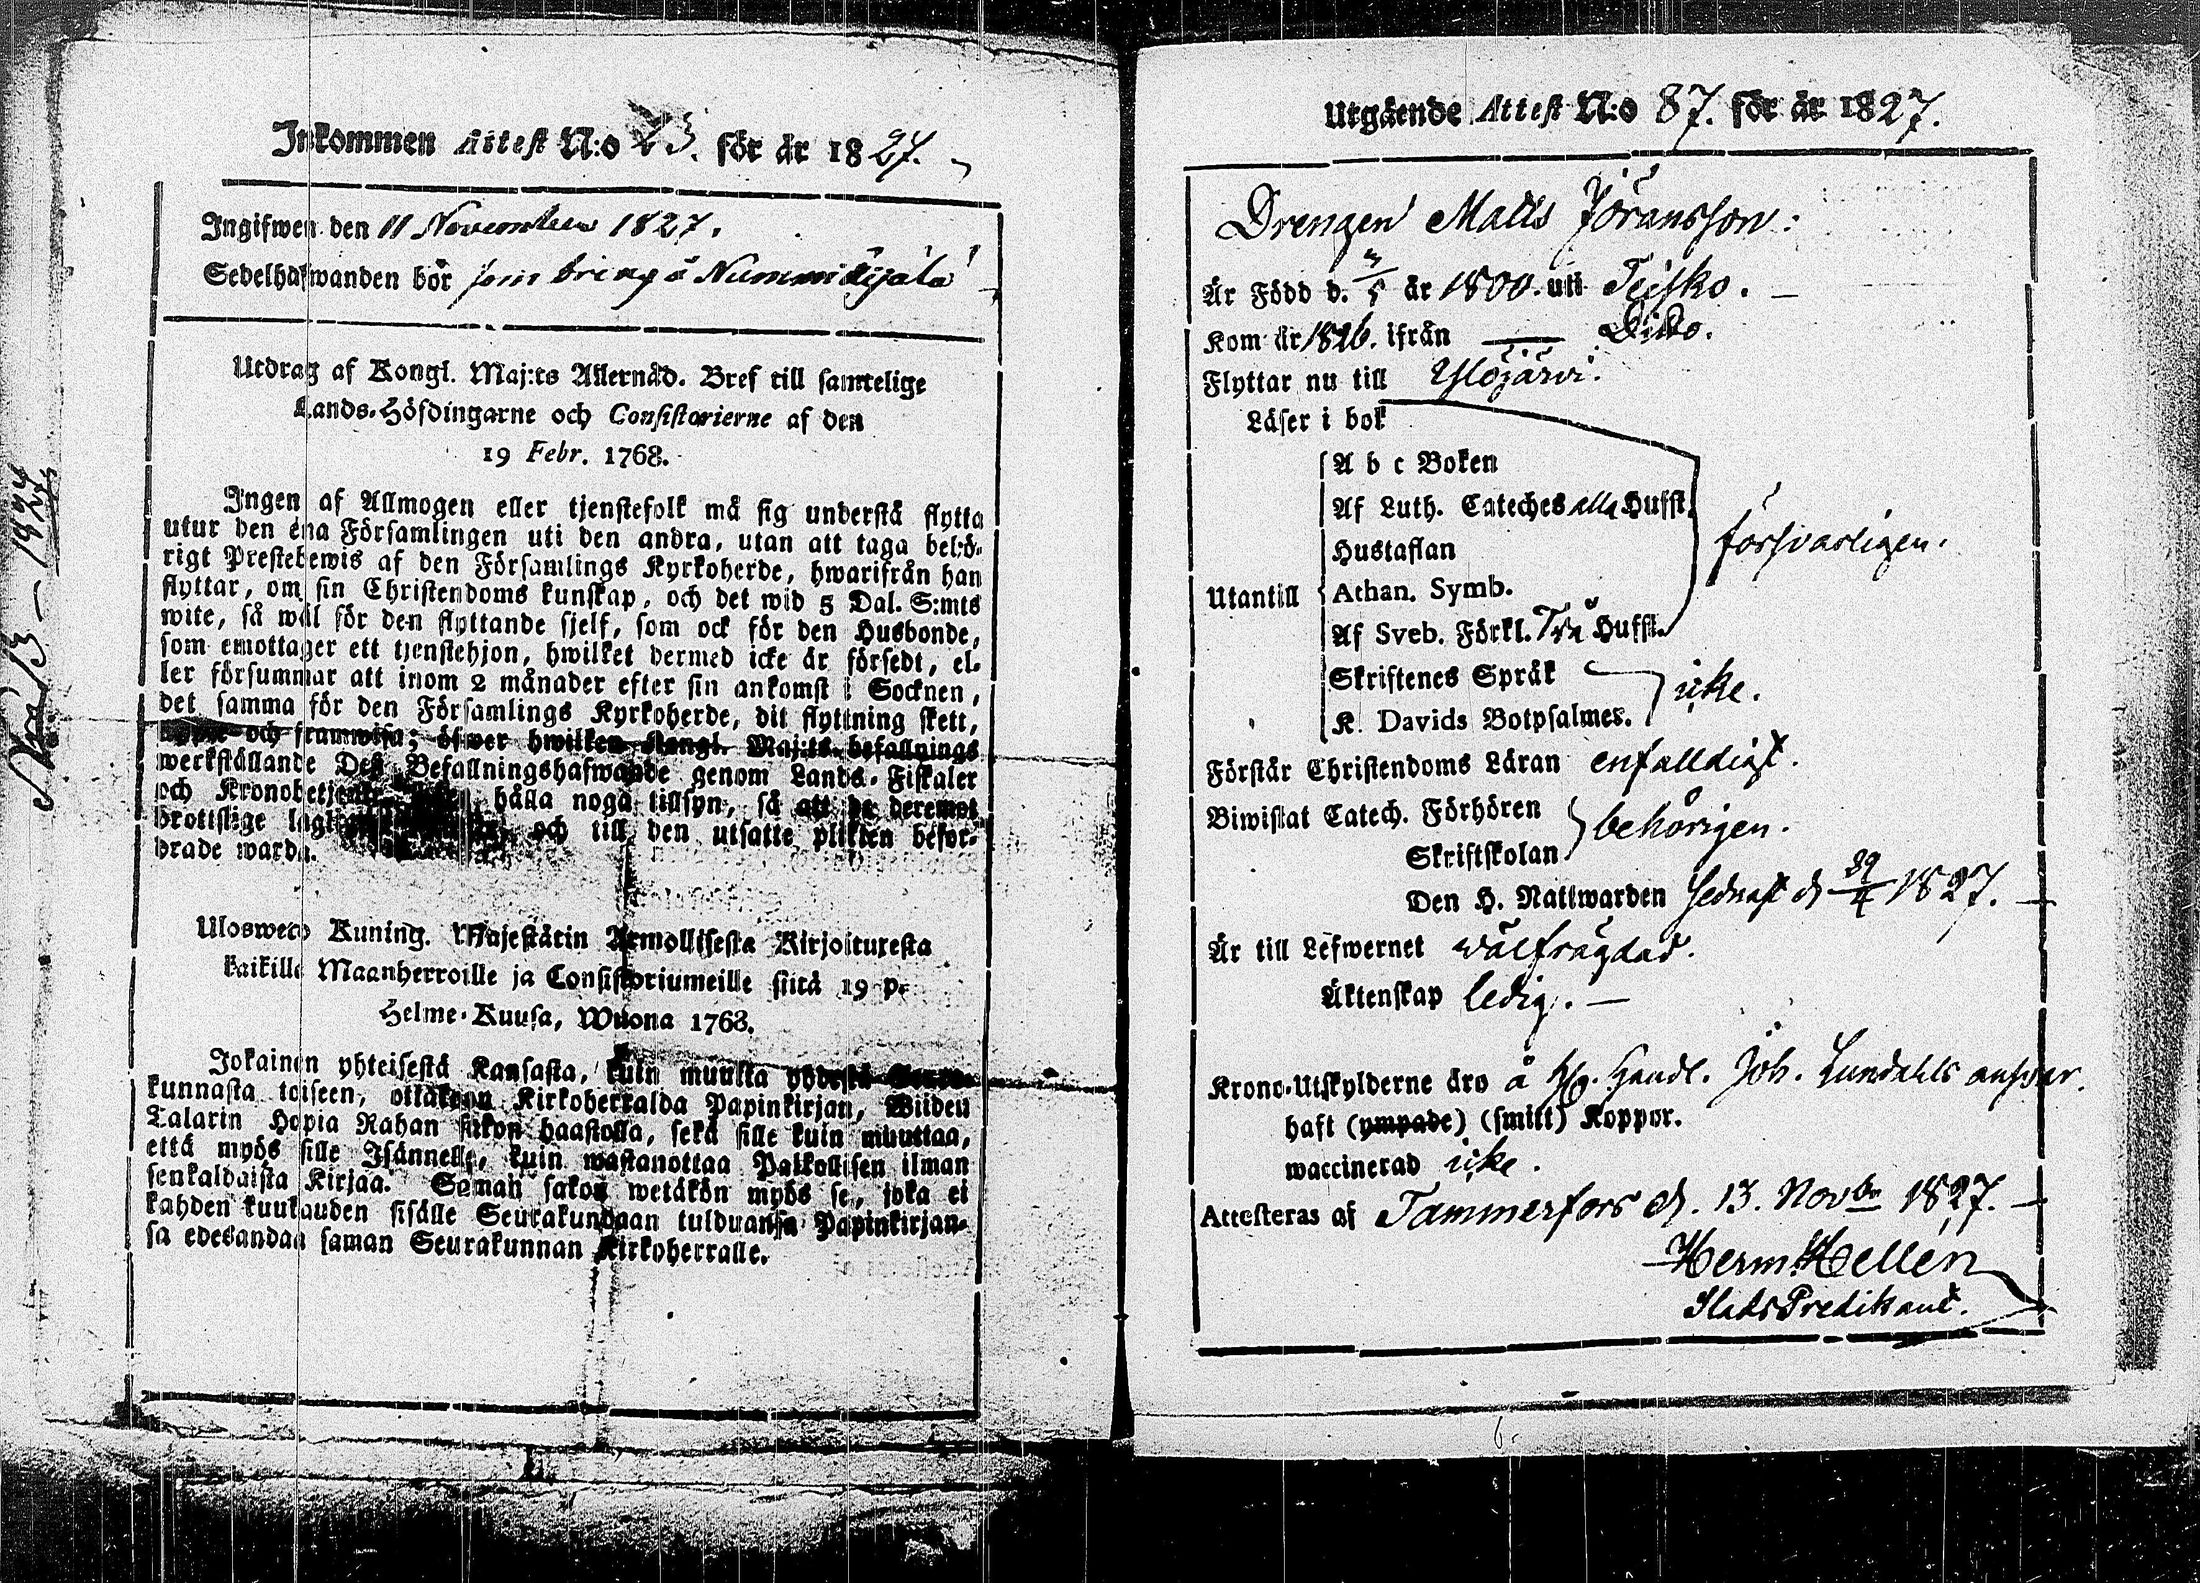 Inkommen Attest N:o 23. för år 1827.
Ingifwen den 11 November 1827.
Sedelhafwanden bör som dreng å Nummi
Utdrag af Kongl. Maj:ts Allernåd. Bref till samtelige
Lands-Höfdingarne och Consistorierne af den
19 Febr. 1768.
Ingen af Allmogen eller tjenstefolk må sig understå flytta
utur den ena Församlingen uti den andra, utan att taga behö-
rigt Prestebewis af den Församlings Kyrkoherde, hwarifrån han
flyttar, om sin Christendoms kunskap, och det wid 5 Dal. S:mts
wite, så wäl för den flyttande sjelf, som ock för den Husbonde,
som emottager ett tjenstehjon, hwilket dermed icke är försedt, el-
ler försummar att inom 2 månader efter sin ankomst i Socknen,
det samma för den Församlings Kyrkoherde, dit flyttning skett,
och framwisa; öfwer hwilken Kongl. Maj:ts befallnings
werkställande Deß Befallningshafwande genom Lands-Fiskaler
och Kronobetjente hålla noga tillsyn, så att de deremot
brottslige och till den utsatte plikten befor-
drade warda.
Ulosweto Kuning. Majestätin Armollisesta Kirjoituxesta
kaikille Maanherroille ja Consistoriumeille siitä 19 p.
Helme-Kuusa, Wuona 1768.
Jokainen yhteisestä Kansasta, kuin muutta yhdestä Seura-
kunnasta toiseen, ottakoon Kirkoherralda Papinkirjan, Wiiden
Talarin Hopia Rahan sakon haastolla, sekä sille kuin muuttaa,
että myös sille Isännelle, kuin wastanottaa Palkollisen ilman
senkaldaista Kirjaa. Saman sakon wetäkön myös se, joka ei
kahden kuukauden sisälle Seurakundaan tulduansa Papinkirjan-
sa edesandaa saman Seurakunnan Kirkoherralle.
Utgående Attest N:o 87. för år 1827.
Drengen Matts Jöransson.
Är Född d. år 1800. uti Teisko.
Kom år 1826. ifrån — Dito.
Flyttar nu till Ylöjärvi.
Läser i bok
Utantill
A b c Boken
Af Luth. Cateches alla Hufst.
Hustaflan
Athan. Symb.
Af Sveb. Förkl. Tre Hufst.
försvarligen.
Skriftenes Språk
K. Davids Botpsalmer.
icke.
Förstår Christendoms Läran enfalldigt.
Biwistat Catech. Förhören
Skriftskolan
behörigen.
Den H. Nattwarden sednast d. 29/4 1827.
Är till Lefwernet wälfrägdad.
Äktenskap ledig.
Krono-Utskylderne äro å Hr. Handl. Joh. Lundahls answar.
haft (ympade) (smitt) Koppor.
waccinerad icke.
Attesteras af Tammerfors d. 13. Novbr 1827.
Herm. Hellén
StadsPredikant.